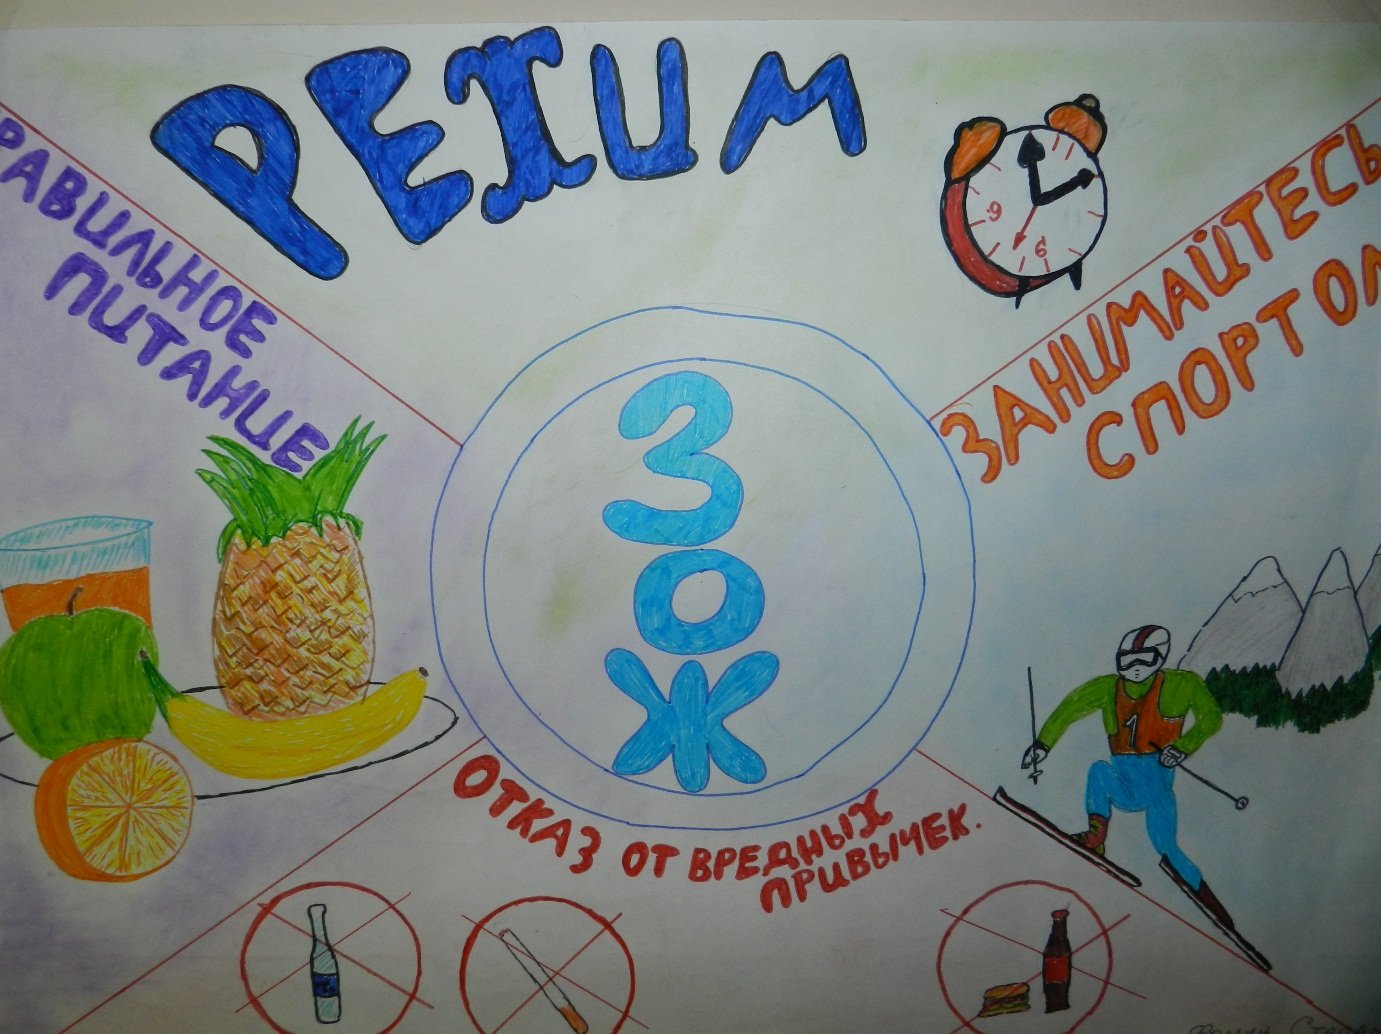 РЕЖИМ
РАВИЛЬНОЕ
ПИТАНИЕ
9
6
ЗАНИМАЙТЕСЬ
СПОРТОМ
ЗОЖ
1
ОТКАЗ ОТ ВРЕДНЫХ
ПРИВЫЧЕК.